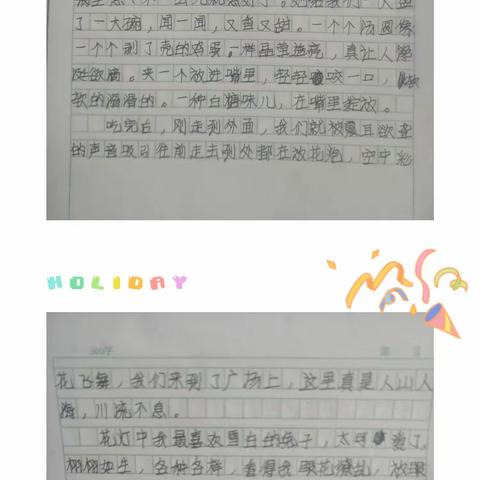 了一大碗，闻一闻，又香又甜。一个个汤圆像
一个个剥了壳的鸡蛋，一样晶莹透亮，真让人馋
涎欲滴。夹一个放进嘴里，轻轻咬一口，软
软的滑滑的。一种白糖味儿，在嘴里绽放。
吃完后，刚走到外面，我们就被震耳欲聋
的声音吸引往前走去到处都在放花炮，空中彩
HOLIDAY
300字
花飞舞，我们来到了广场上，这里真是人山人
海，川流不息。
花灯中我最喜欢雪白的兔子，太可爱了，
栩栩如生，各种各样，看得我眼花缭乱，